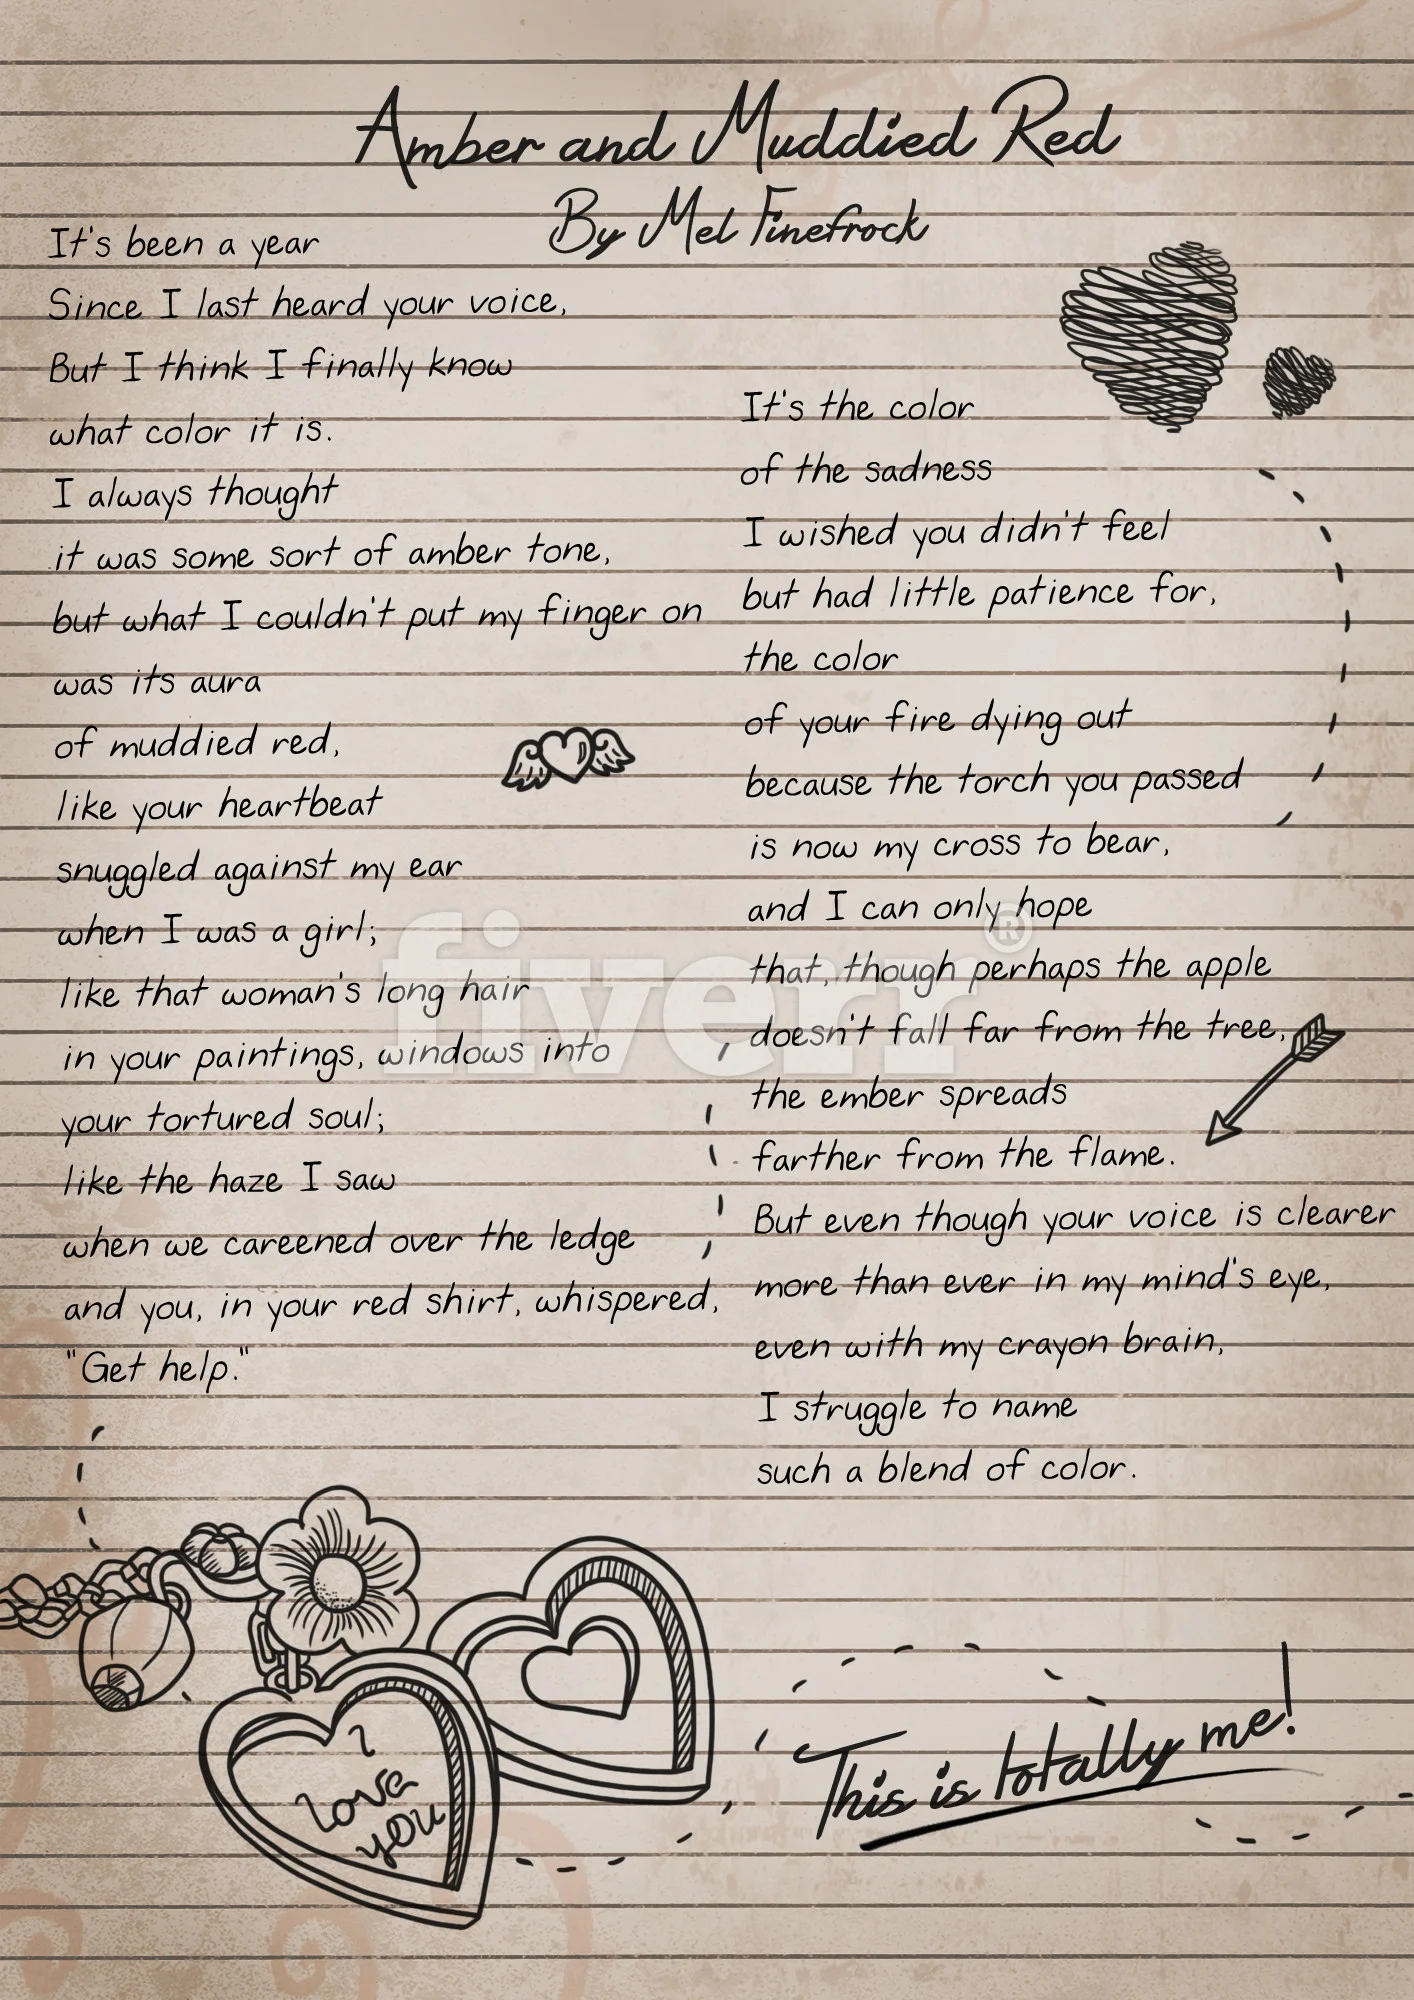 Amber and Muddied Red
By Mel Finefrock
It's been a year
Since I last heard your voice,
But I think I finally know
what color it is.
I always thought
it was some sort of amber tone,
but what I couldn't put my finger on
was its aura
of muddied red,
like your heartbeat
snuggled against my ear
when I was a girl;
like that woman's long hair
in your paintings, windows into
your tortured soul;
like the haze I saw
when we careened over the ledge
and you, in your red shirt, whispered,
"Get help."
It's the color
of the sadness
I wished you didn't feel
but had little patience for,
the color
of your fire dying out
because the torch you passed
is now my cross to bear,
and I can only hope
that, though perhaps the apple
doesn't fall far from the tree,
the ember spreads
farther from the flame.
But even though your voice is clearer
more than ever in my mind's eye,
even with my crayon brain,
I struggle to name
such a blend of color.
fiverr®
I
love
you
This is totally me!